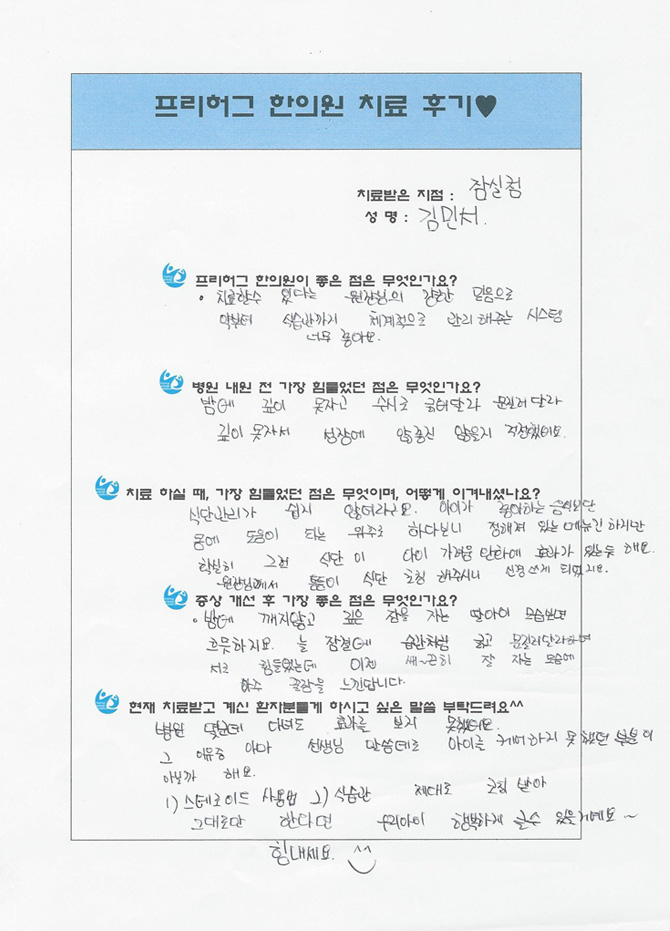 프리허그 한의원 치료 후기♥
치료받은 지점 : 잠실점
성 명 : 김민서.
프리허그 한의원이 좋은 점은 무엇인가요?
• 치료할수 있다는 원장님의 강한 믿음으로
약부터 식습관까지 체계적으로 관리 해주는 시스템
너무 좋아요.
병원 내원 전 가장 힘들었던 점은 무엇인가요?
밤에 깊이 못자고 수시로 긁어달라 문질러 달라
깊이 못자서 성장에 않좋진 않을지 걱정했어요.
치료 하실 때, 가장 힘들었던 점은 무엇이며, 어떻게 이겨내셨나요?
식단관리가 쉽지 않더라구요. 아이가 좋아하는 음식보단
몸에 도움이 되는 위주로 하다보니 정해져 있는 메뉴긴 하지만
확실히 그런 식단 이 아이 가려움 완화에 효과가 있는듯 해요.
원장님께서 틈틈이 식단 코칭 해주시니 신경쓰게 되었지요.
증상 개선 후 가장 좋은 점은 무엇인가요?
• 밤에 깨지않고 깊은 잠을 자는 딸아이 모습보면
흐뭇하지요. 늘 잠결에 습관처럼 긁고 문질러달라하면
서로 힘들었는데 이젠 쌔~근히 잘 자는 모습에
아주 꿀잠을 느낀답니다.
현재 치료받고 계신 환자분들게 하시고 싶은 말씀 부탁드려요^^
병원 몇군데 다녀도 효과를 보지 못했어요.
그 이유중 아마 선생님 말씀데로 아이를 케어하지 못했던 부분이
아닐까 해요.
1) 스테로이드 사용법 2) 식습관 제대로 코칭 받아
그대로만 한다면 우리아이 행복하게 클수 있을거에요~
힘내세요. ^^